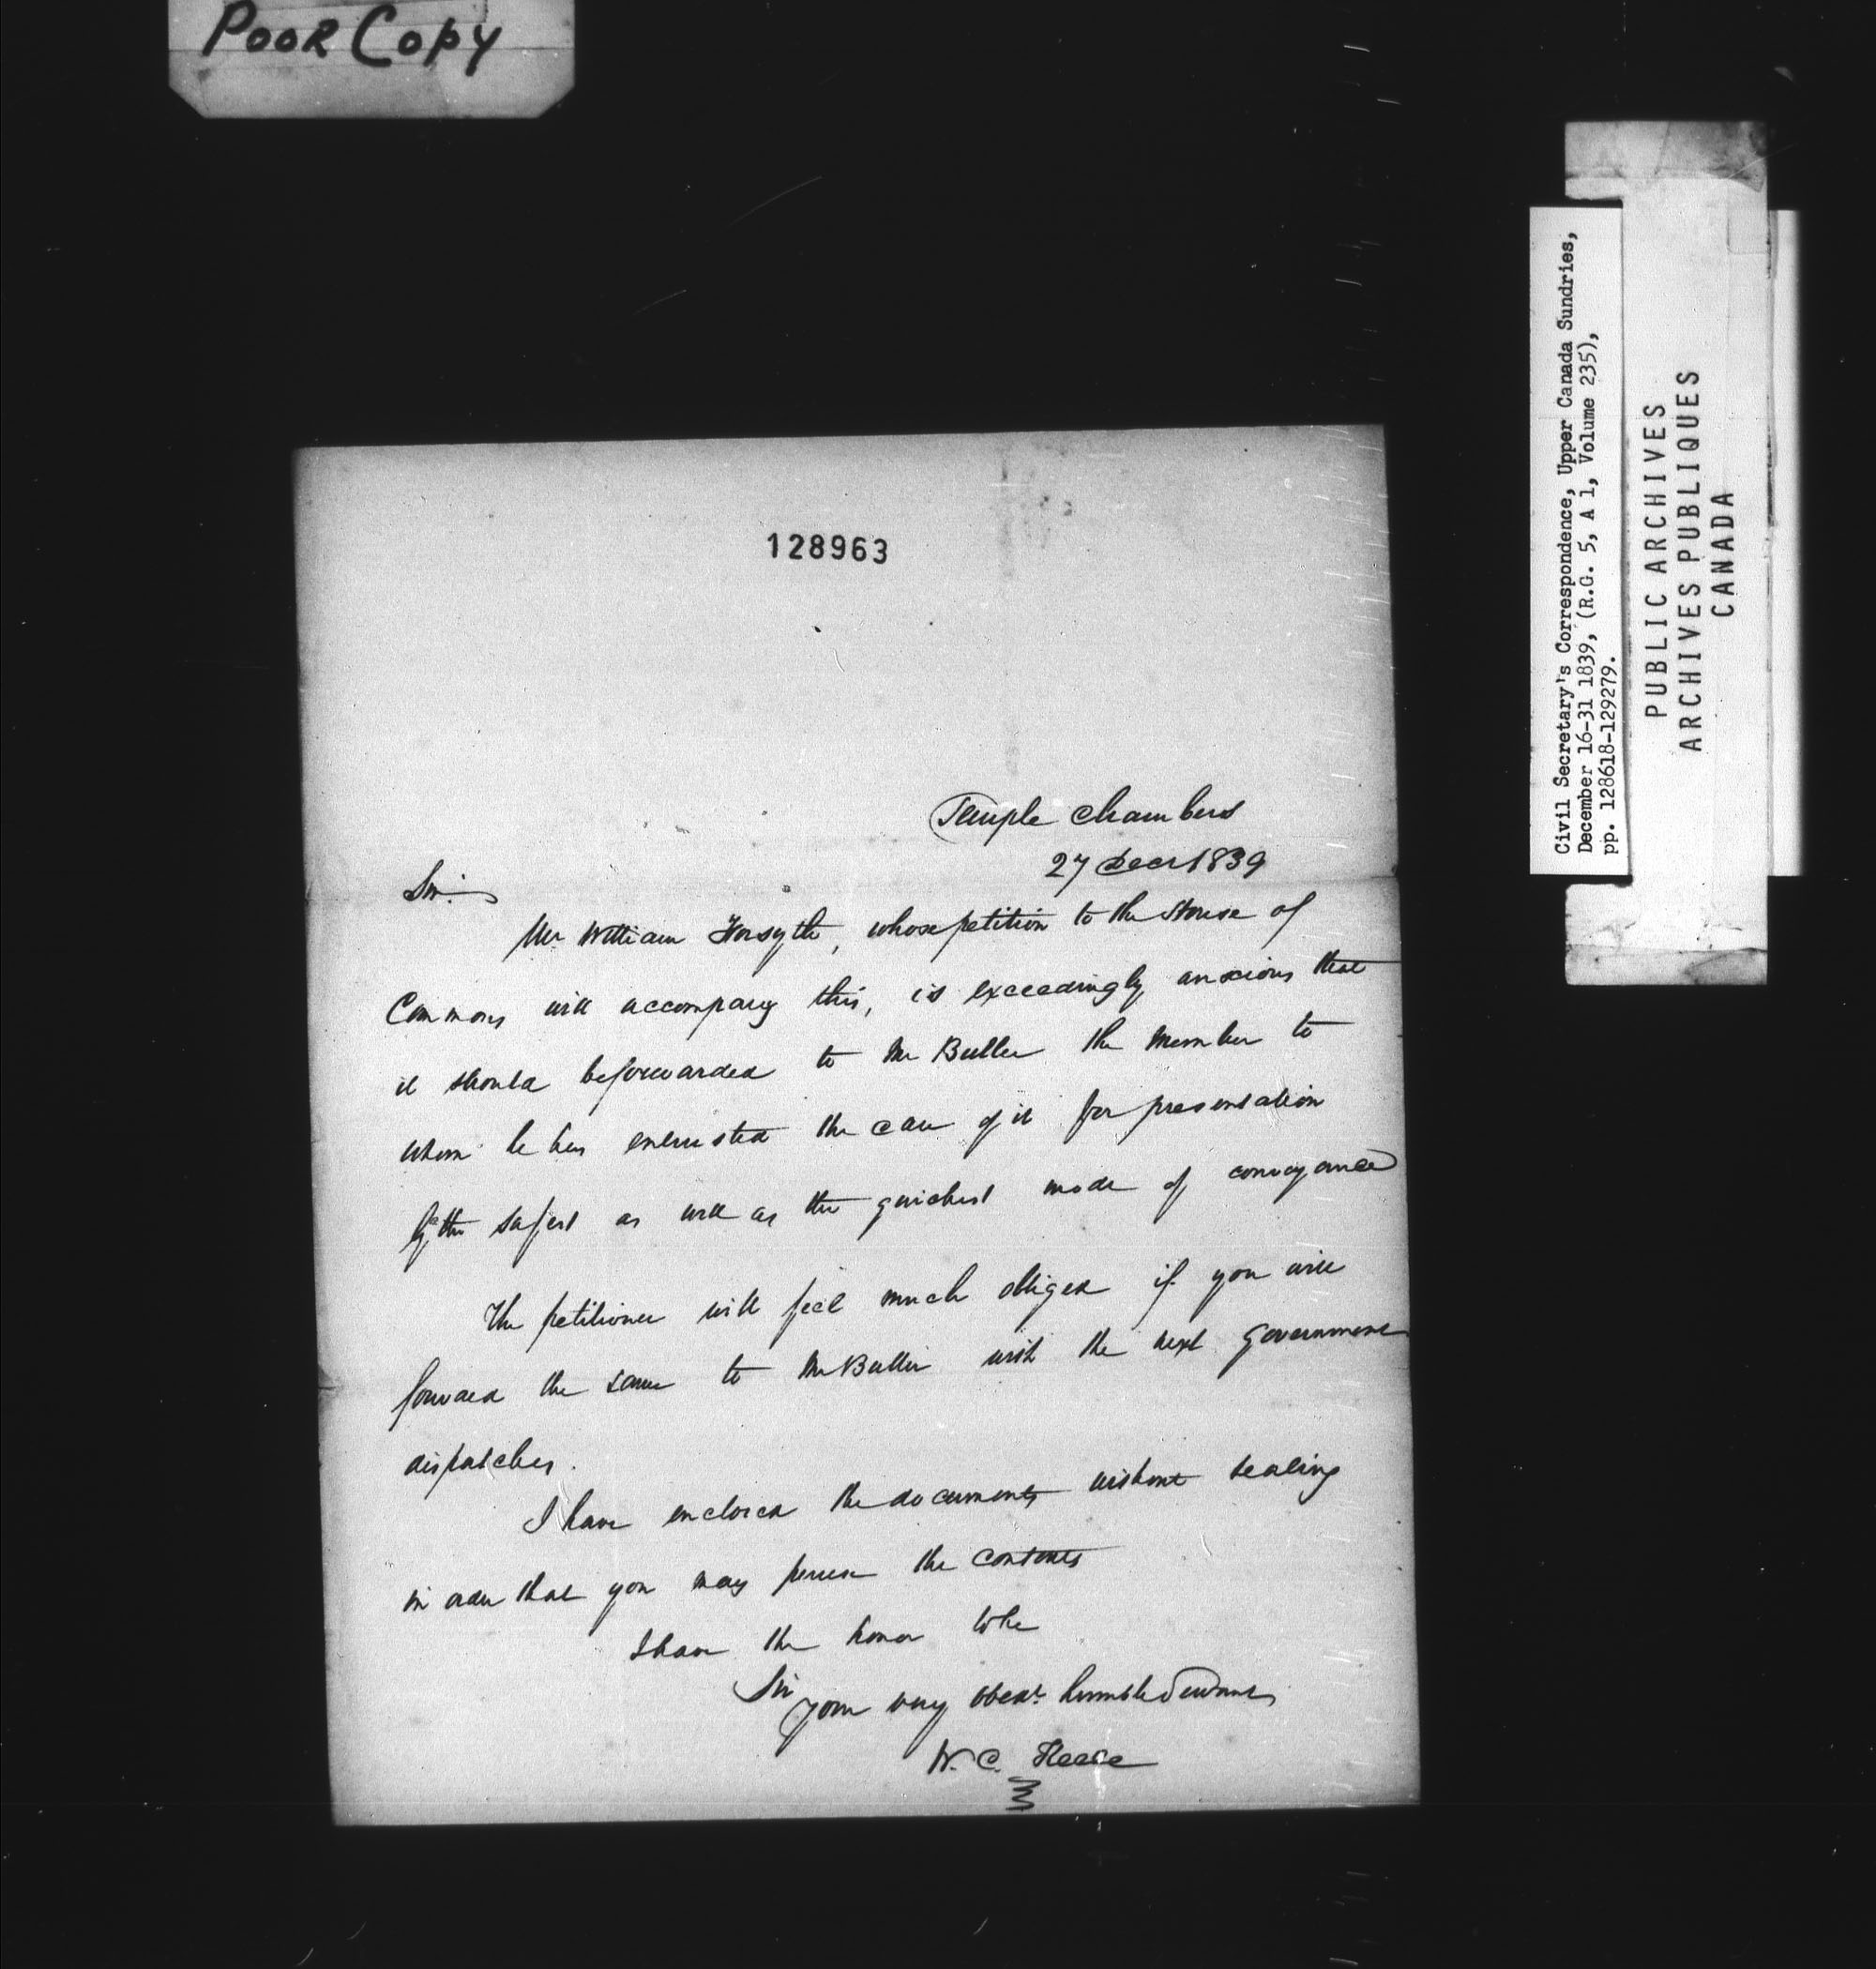 Poor Copy
128963
Temple Chambers
27 Decr 1839
Sir.
Mr William Forsyth, whose petition to the House of
Commons will accompany this, is exceedingly anxious that
it should be forwarded to Mr Buller the Member to
whom he has entrusted the care of it for presentation
by the safest as well as the quickest mode of conveyance
The petitioner will feel much obliged if you will
forward the same to Mr Buller with the next Government
dispatches.
I have enclosed the documents without sealing
in order that you may peruse the contents
I have the honor to be
Sir
your very obedt. humble Servant
W. C.
Civil Secretary's Correspondence, Upper Canada Sundries,
December 16-31 1839, (R.G. 5, A 1, Volume 235),
pp. 128618-129279.
PUBLIC ARCHIVES
ARCHIVES PUBLIQUES
CANADA